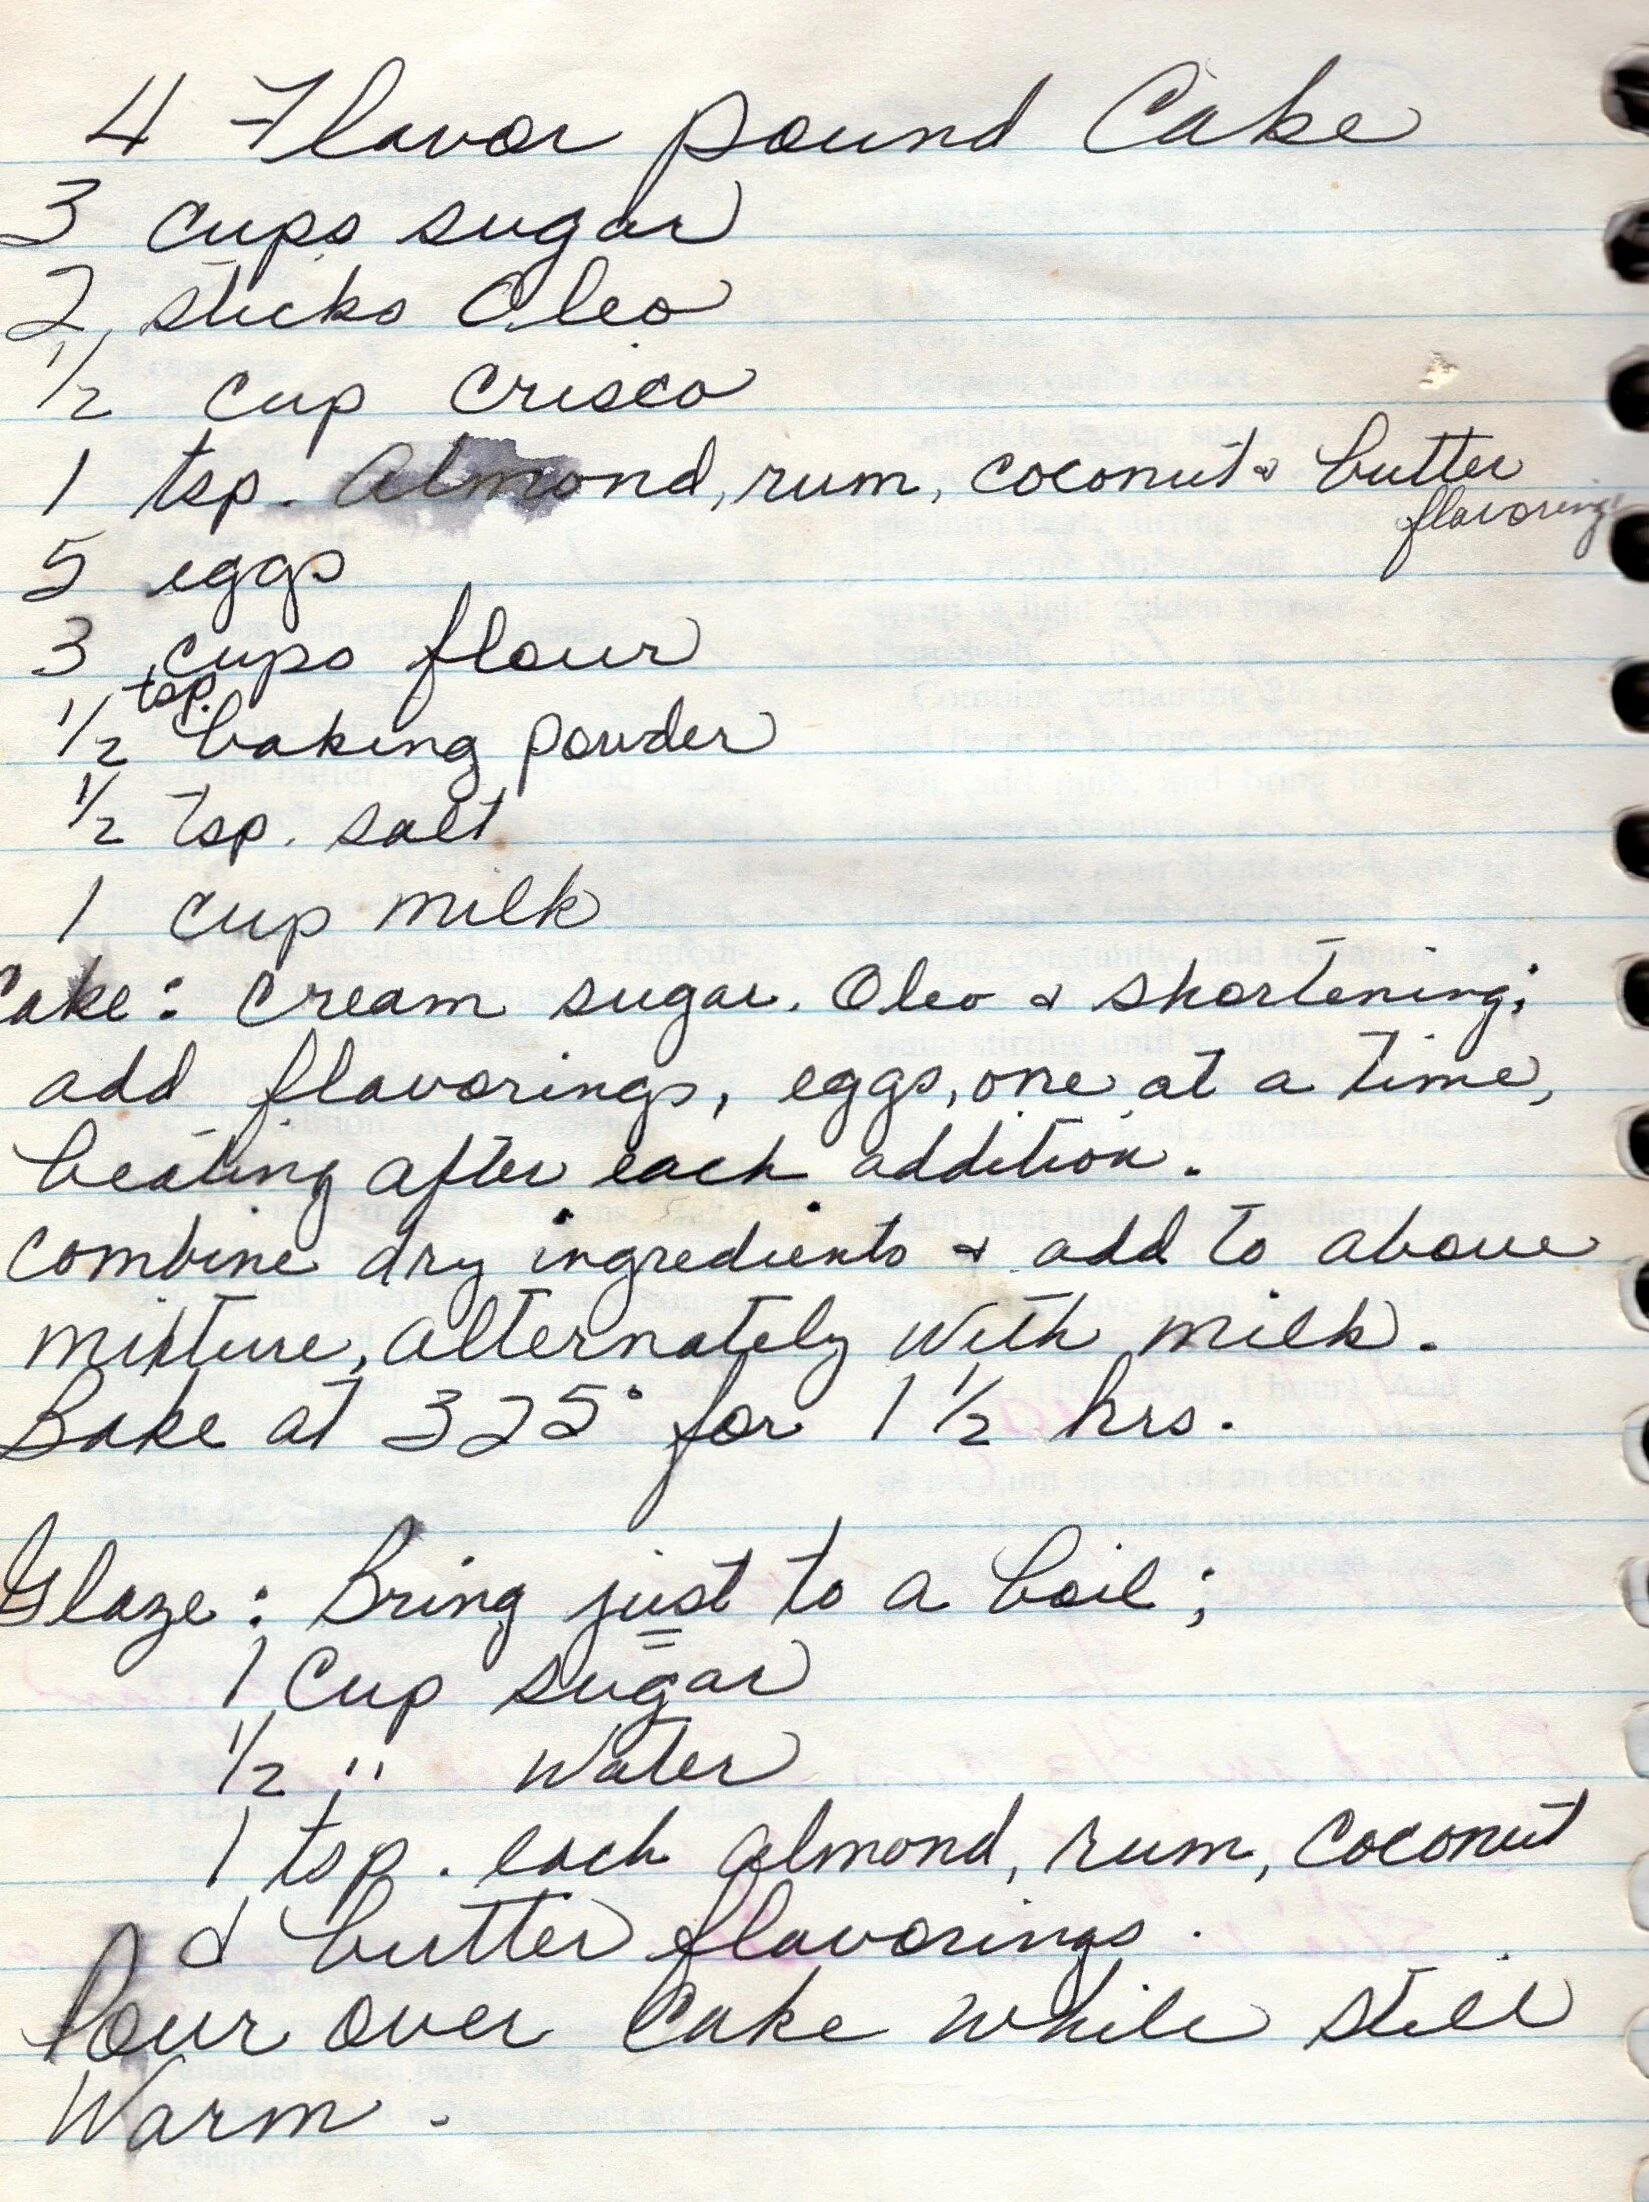 4 Flavor pound Cake
3 cups sugar
2 sticks Oleo
1/2 cup crisco
1 tsp. Almond, rum, coconut & butter
flavorings
5 eggs
3 cups flour
1/2 tsp. baking powder
1/2 tsp. salt
1 cup milk
Cake: cream sugar, Oleo & shortening;
add flavorings, eggs, one at a time,
beating after each addition.
combine dry ingredients & add to above
mixture, alternately with milk.
Bake at 325° for 1 1/2 hrs.
Glaze: Bring just to a boil;
1 Cup sugar
1/2 " water
1 tsp. each almond, rum, coconut
& butter flavorings.
Pour over Cake while still
Warm.